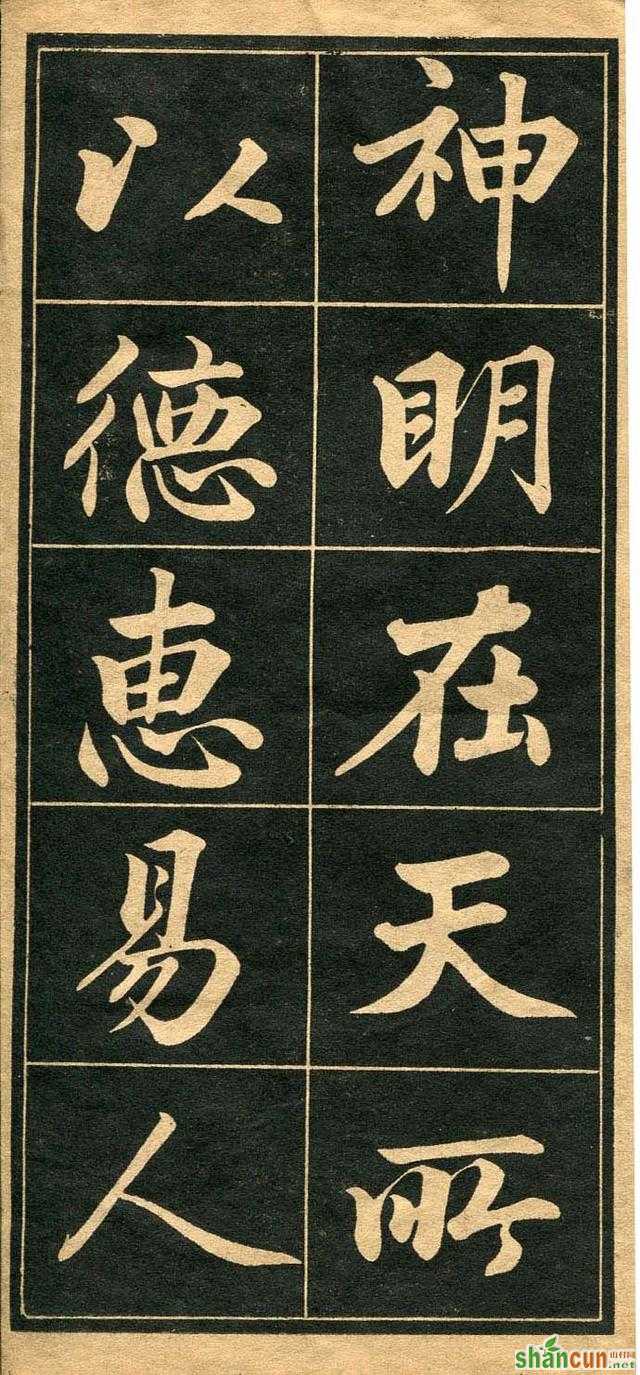 神明在天所
以德惠易人
shancun
山村网
.net